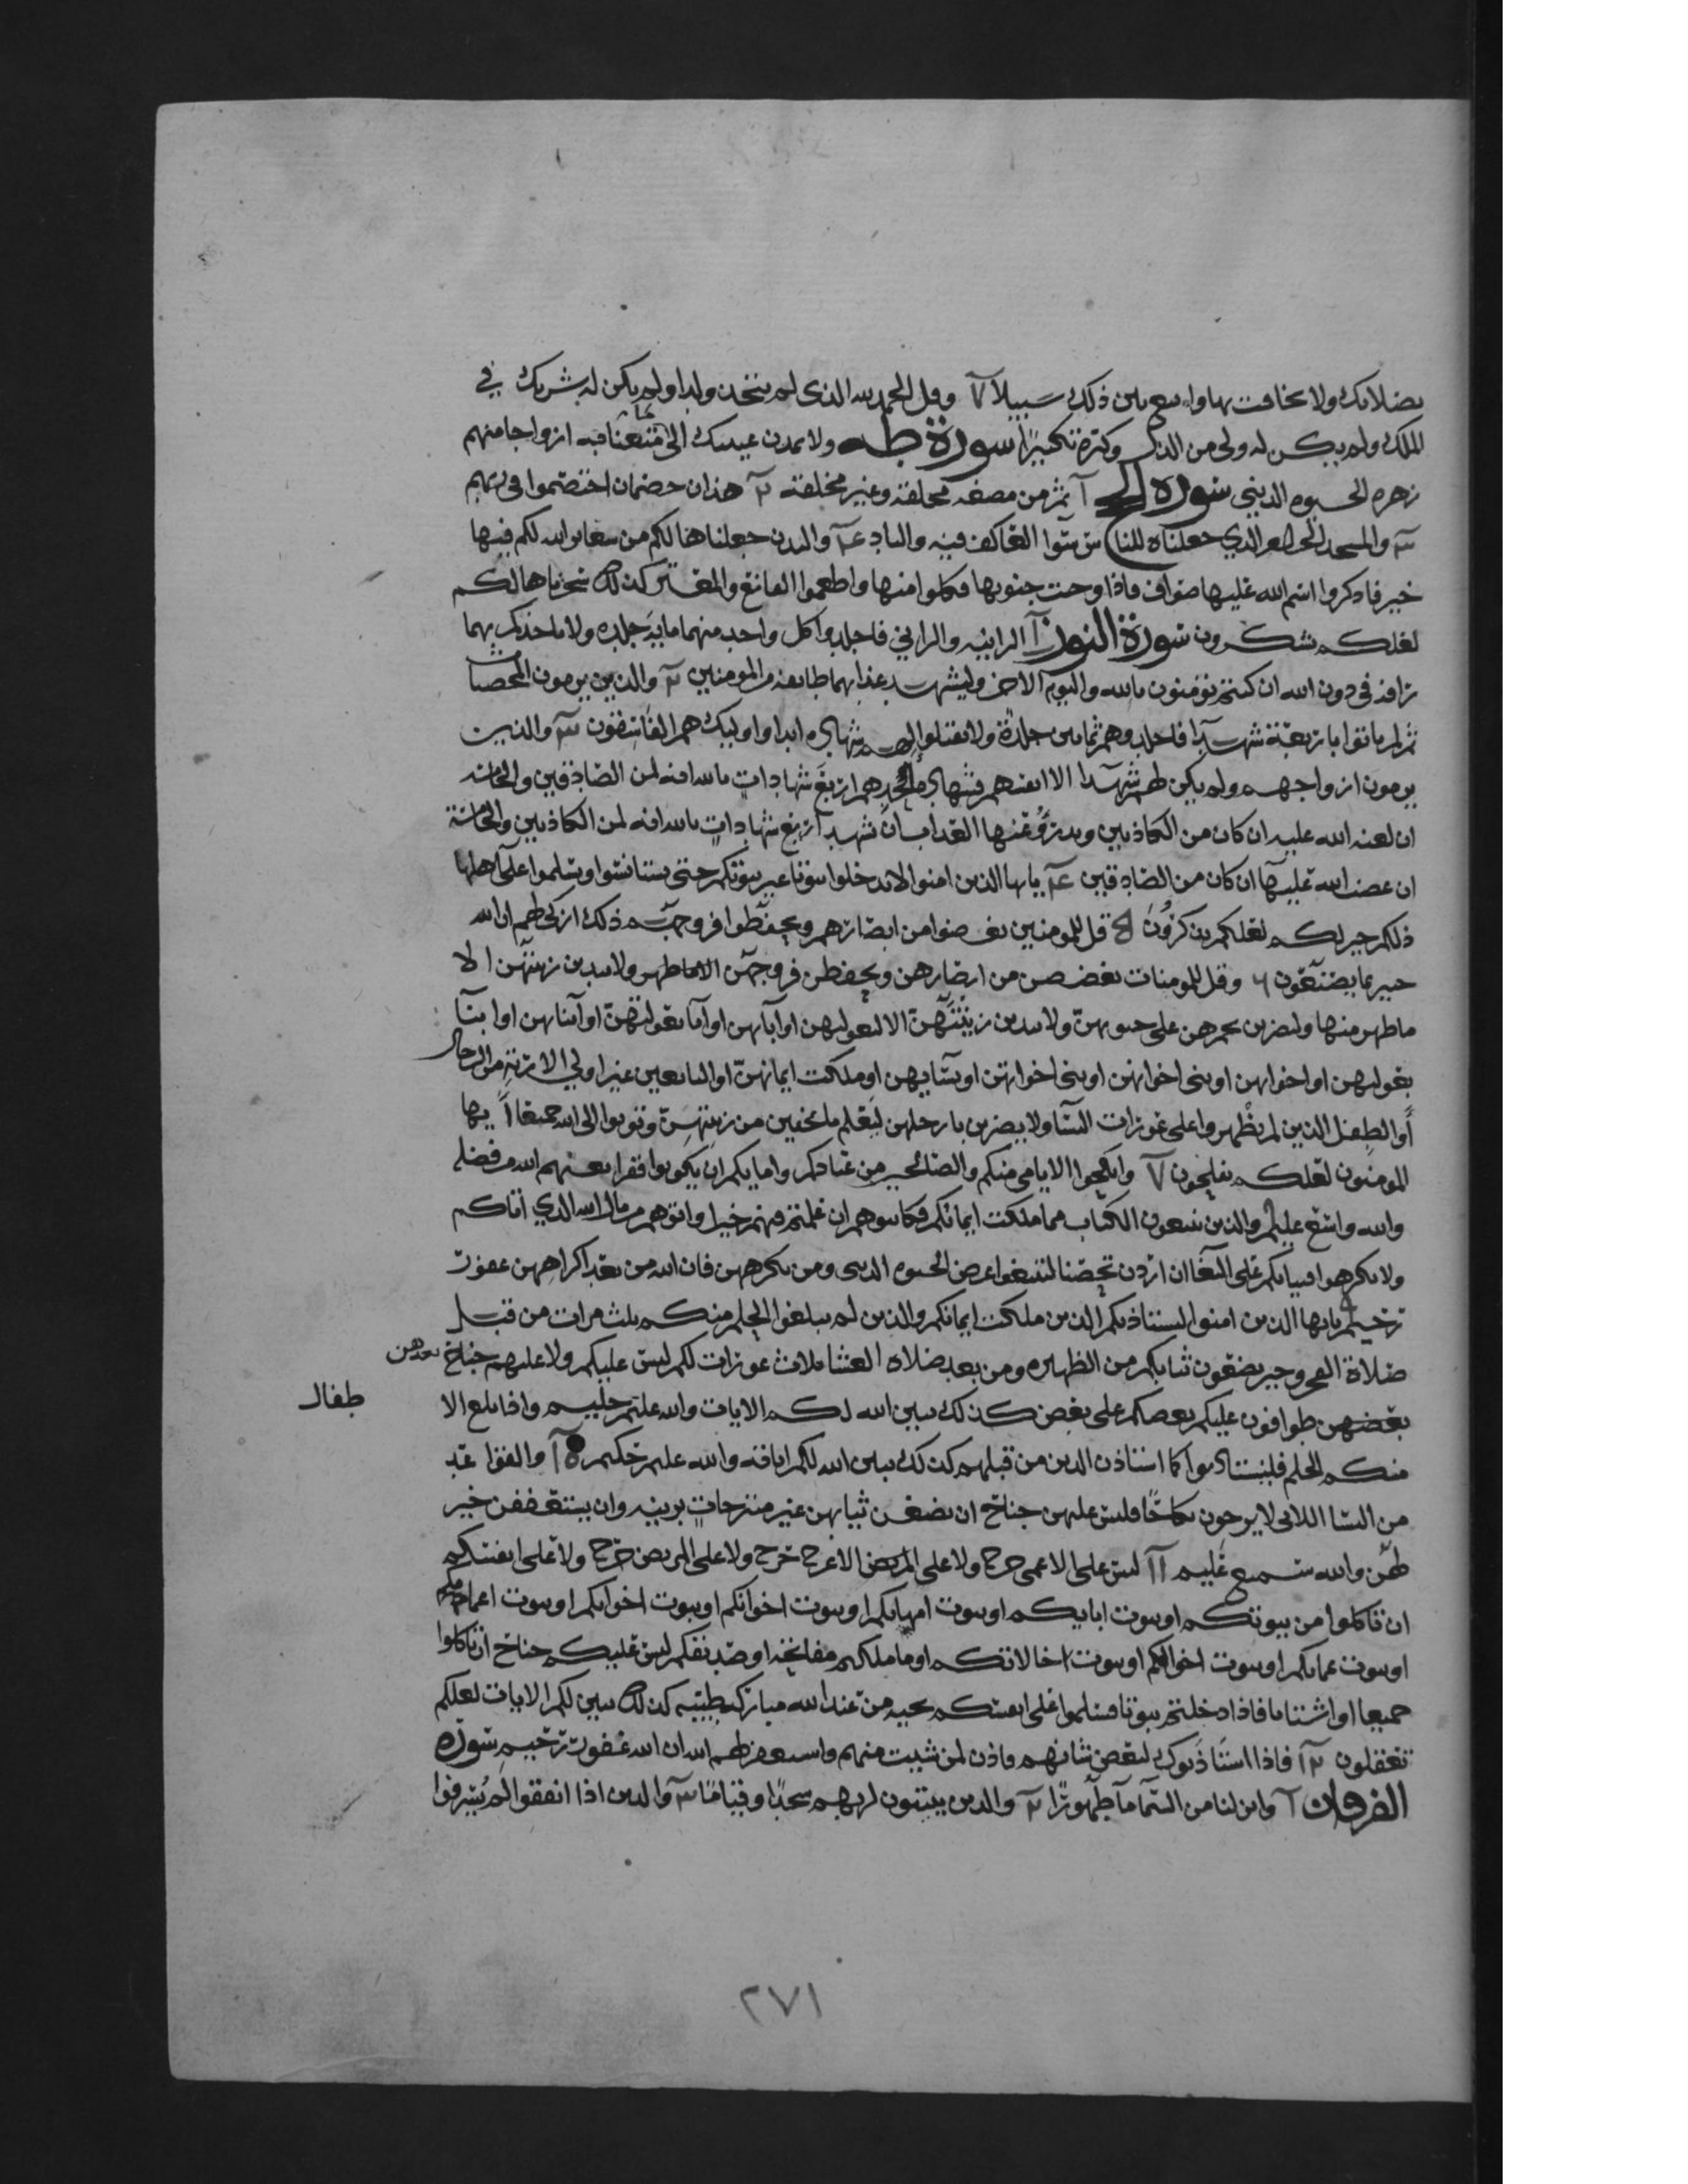 بصلاتك ولا تخافت بها وابتغ بين ذلك سبيلا ٧ وقل الحمد لله الذي لم يتخذ ولدا ولم يكن له شريك في
الملك ولم يكن له ولي من الذل وكبره تكبيرا سورة طه ولا تمدن عينيك الى ما متعنا به ازواجا منهم
زهرة الحيوة الدنيى سورة الحج ١ ثم من مضغة مخلقة وغير مخلقة ٢ هذان خصمان اختصموا في ربهم
٣ والمسجد الحرام الذي جعلناه للناس سوآ العاكف فيه والباد ٤ والبدن جعلناها لكم من شعائر الله لكم فيها
خير فاذكروا اسم الله عليها صواف فاذا وجبت جنوبها فكلوا منها واطعموا القانع والمعتر كذلك سخرناها لكم
لعلكم تشكرون سورة النور ١ الزانية والزاني فاجلدوا كل واحد منهما ماية جلدة ولا تاخذكم بهما
رافة في دين الله ان كنتم تؤمنون بالله واليوم الاخر وليشهد عذابهما طايفة من المومنين ٢ والذين يرمون المحصنات
ثم لم ياتوا باربعة شهدآ فاجلدوهم ثمانين جلدة ولا تقبلوا لهم شهادة ابدا واوليك هم الفاسقون ٣ والذين
يرمون ازواجهم ولم يكن لهم شهدآ الا انفسهم فشهادة احدهم اربع شهادات بالله انه لمن الصادقين والخامسة
ان لعنة الله عليه ان كان من الكاذبين ويدرؤ عنها العذاب ان تشهد اربع شهادات بالله انه لمن الكاذبين والخامسة
ان غضب الله عليها ان كان من الصادقين ٤ يايها الذين امنوا لا تدخلوا بيوتا غير بيوتكم حتى تستانسوا وتسلموا على اهلها
ذلكم خير لكم لعلكم تذكرون ٥ قل للمومنين يغضوا من ابصارهم ويحفظوا فروجهم ذلك ازكى لهم ان الله
خبير بما يصنعون ٦ وقل للمومنات يغضضن من ابصارهن ويحفظن فروجهن الا ما ظهر ولا يبدين زينتهن الا
ما ظهر منها وليضربن بخمرهن على جيوبهن ولا يبدين زينتهن الا لبعولتهن او آبائهن او آبآ بعولتهن او ابنائهن او ابنآ
بعولتهن او اخوانهن او بني اخوانهن او بني اخواتهن او نسآيهن او ملكت ايمانهن او التابعين غير اولي الاربة من الرجال
او الطفل الذين لم يظهروا على عورات النسآ ولا يضربن بارجلهن ليعلم ما يخفين من زينتهن وتوبوا الى الله جميعا ايها
المومنون لعلكم تفلحون ٧ وانكحوا الايامى منكم والصالحين من عبادكم وامايكم ان يكونوا فقرا يغنهم الله من فضله
والله واسع عليم والذين يبتغون الكتاب مما ملكت ايمانكم فكاتبوهم ان علمتم فيهم خيرا واتوهم من مال الله الذي اتاكم
ولا تكرهوا فتياتكم على البغآ ان اردن تحصنا لتبتغوا عرض الحيوة الدنيى ومن يكرههن فان الله من بعد اكراههن غفور
رحيم يايها الذين امنوا ليستاذنكم الذين ملكت ايمانكم والذين لم يبلغوا الحلم منكم ثلث مرات من قبل
صلاة الفجر وحين تضعون ثيابكم من الظهيرة ومن بعد صلاة العشا ثلاث عورات لكم ليس عليكم ولا عليهم جناح بعدهن
بعضهن طوافون عليكم بعضكم على بعض كذلك يبين الله لكم الايات والله عليم حليم واذا بلغ الا
طفال
منكم الحلم فليستاذنوا كما استاذن الذين من قبلهم كذلك يبين الله لكم اياته والله عليم حكيم ١٠ والقواعد
من النسا اللاتي لا يرجون نكاحا فليس عليهن جناح ان يضعن ثيابهن غير متبرجات بزينة وان يستعففن خير
لهن والله سميع عليم ١١ ليس على الاعمى حرج ولا على الاعرج حرج ولا على المريض حرج ولا على انفسكم
ان تاكلوا من بيوتكم او بيوت ابايكم او بيوت امهاتكم او بيوت اخوانكم او بيوت اخواتكم او بيوت اعمامكم
او بيوت عماتكم او بيوت اخوالكم او بيوت خالاتكم او ما ملكتم مفاتحه او صديقكم ليس عليكم جناح ان تاكلوا
جميعا او اشتاتا فاذا دخلتم بيوتا فسلموا على انفسكم تحية من عند الله مباركة طيبة كذلك يبين لكم الايات لعلكم
تعقلون ١٢ فاذا استاذنوك لبعض شانهم فاذن لمن شيت منهم واستغفر لهم الله ان الله غفور رحيم سورة
الفرقان ١ وانزلنا من السمآ مآ طهورا ٢ والذين يبيتون لربهم سجدا وقياما ٣ والذين اذا انفقوا لم يسرفوا
٢٧١